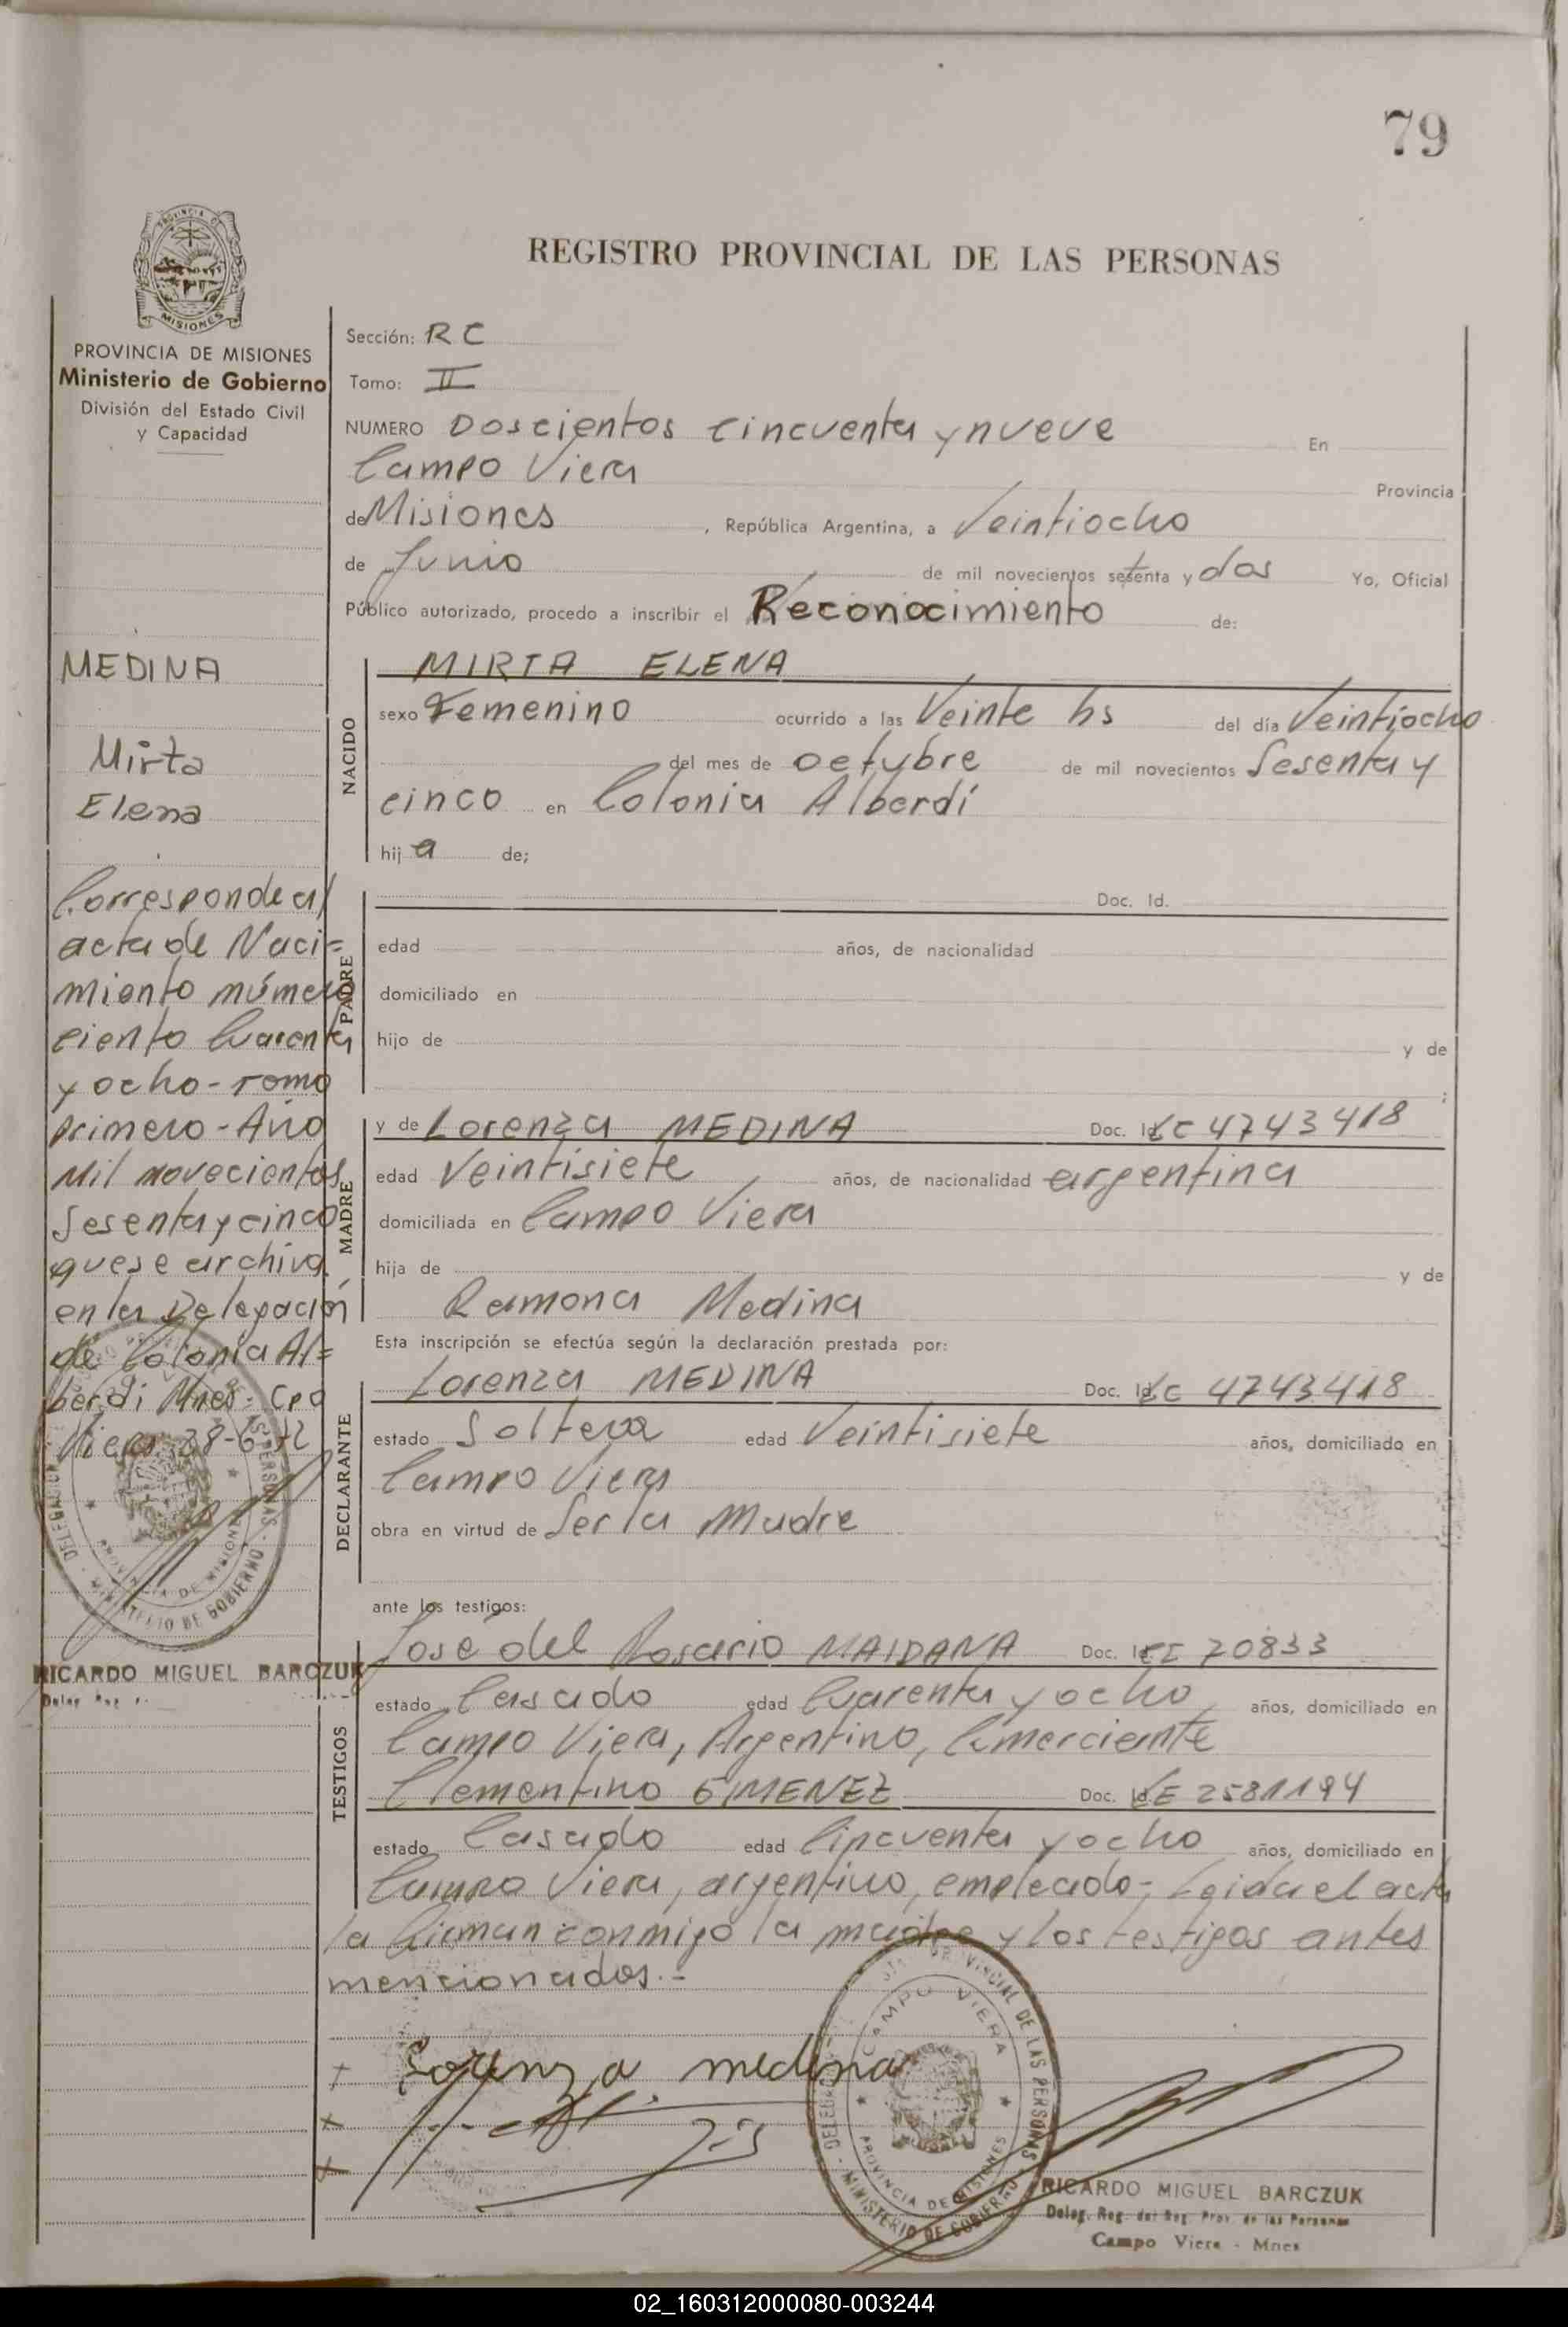 79
REGISTRO PROVINCIAL DE LAS PERSONAS
PROVINCIA DE MISIONES
Ministerio de Gobierno
División del Estado Civil
y Capacidad
MEDINA
Mirta
Elena
Corresponde al
acta de Naci=
miento número
ciento Cuarenta
y ocho - Tomo
primero - Año
Mil novecientos
Sesenta y cinco
que se archiva
en la Delegación
de Colonia Al=
berdi Mnes - Cpo
Viera 28-6-72
RICARDO MIGUEL BARCZUK
Sección: RC
Tomo: II
NUMERO Doscientos cincuenta y nueve En
Campo Viera Provincia
de Misiones, República Argentina, a Veintiocho
de Junio de mil novecientos setenta y dos Yo, Oficial
Público autorizado, procedo a inscribir el Reconocimiento de:
NACIDO
MIRTA ELENA
sexo Femenino ocurrido a las Veinte hs del día Veintiocho
del mes de octubre de mil novecientos Sesenta y
cinco en Colonia Alberdi
hija de;
PADRE
Doc. Id.
edad años, de nacionalidad
domiciliado en
hijo de y de
;
MADRE
y de Lorenza MEDINA Doc. Id. LC 4743418
edad Veintisiete años, de nacionalidad argentina
domiciliada en Campo Viera
hija de y de
Ramona Medina
Esta inscripción se efectúa según la declaración prestada por:
DECLARANTE
Lorenza MEDINA Doc. Id. LC 4743418
estado Soltera edad Veintisiete años, domiciliado en
Campo Viera
obra en virtud de Ser la Madre
ante los testigos:
TESTIGOS
José del Rosario MAIDANA Doc. Id. CI 70833
estado Casado edad Cuarenta y ocho años, domiciliado en
Campo Viera, Argentino, Comerciante
Clementino GIMENEZ Doc. Id. LE 2581194
estado Casado edad Cincuenta y ocho años, domiciliado en
Campo Viera, argentino, empleado - Leida el acta
la firman conmigo la madre y los testigos antes
mencionados.-
Lorenza medina
CAMPO VIERA
PROVINCIA DE MISIONES
MINISTERIO DE GOBIERNO
RICARDO MIGUEL BARCZUK
Deleg. Reg. del Reg. Prov. de las Personas
Campo Viera - Mnes
02_160312000080-003244